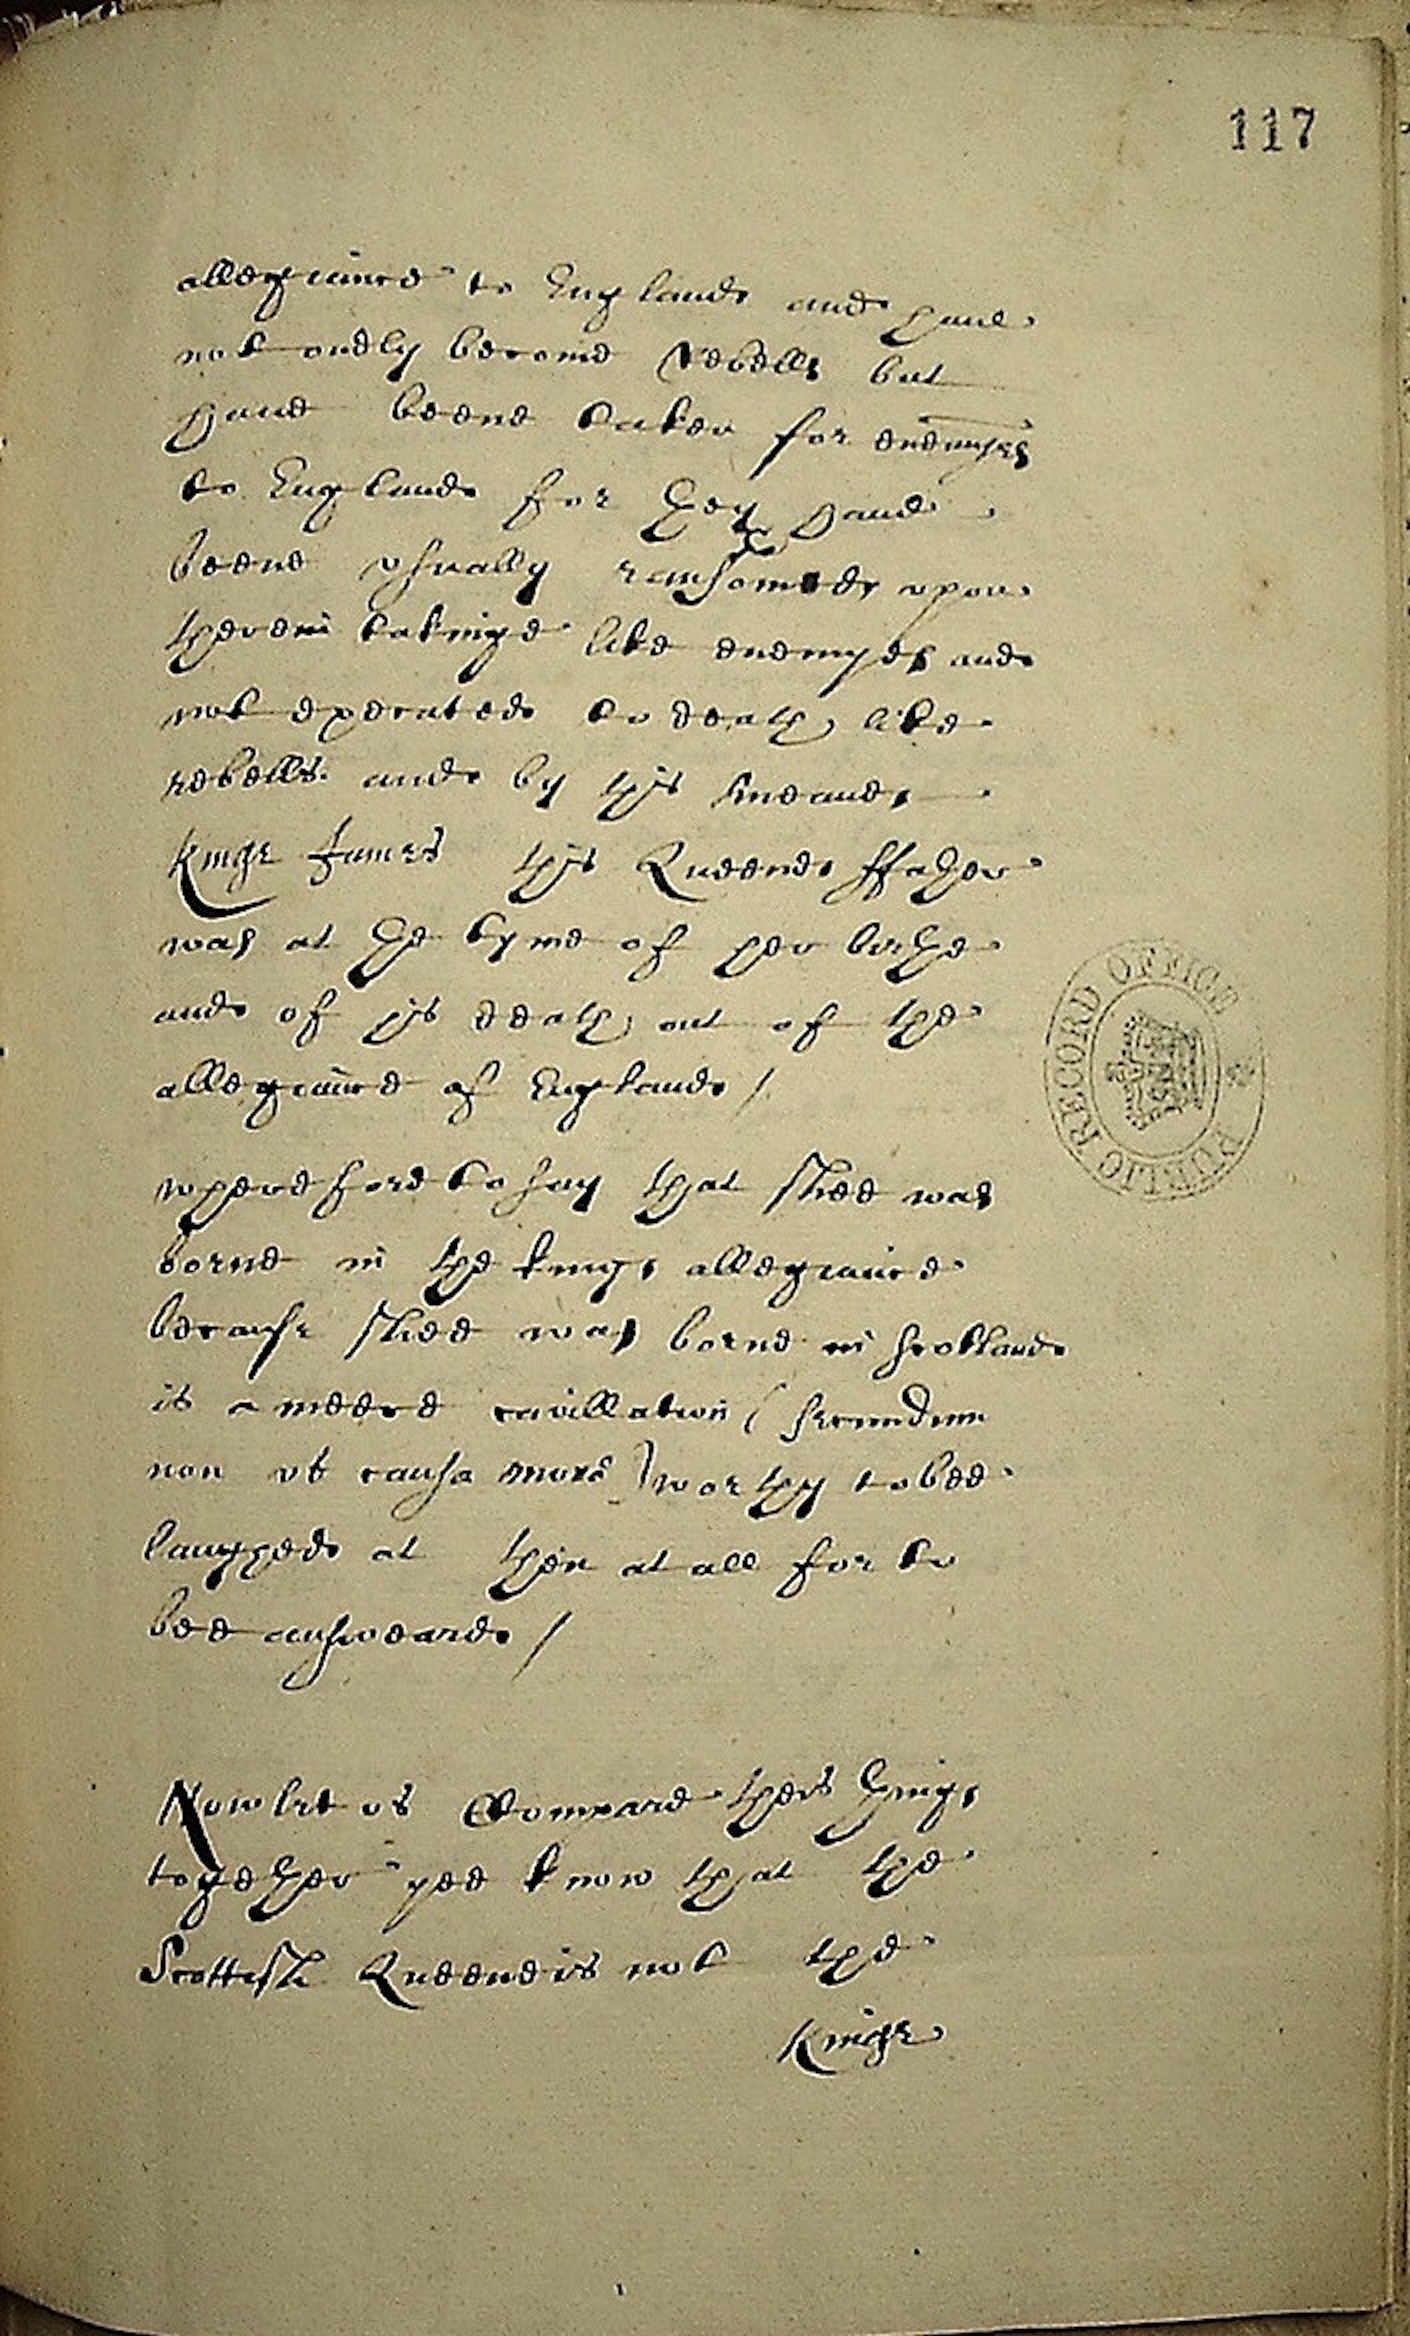 117
allegiance to England and haue
not onely become Rebells but
haue beene taken for enemyes
to England for they haue
beene vsually ransomed vpon
there takinge like enemyes and
not executed to death like
rebells. and by this meanes
Kinge James this Queenes ffather
was at the tyme of her birthe
and of his death out of the
allegiance of England /
wherefore to say that shee was
borne in the kings allegiance
because shee was borne in Scotland
is a meere cavillation ( secundum
non vt causa ) worthy to bee
laughed at then at all for to
bee answeard /
Now let vs Compare theis things
together yee know that the
Scottish Queene is not the
Kinge
PUBLIC RECORD OFFICE